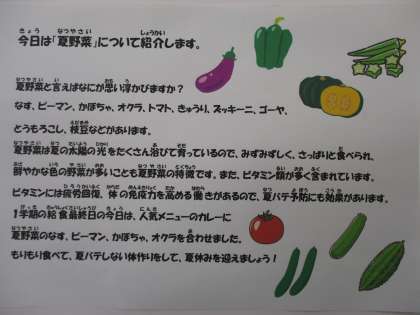 今日は「夏野菜」について紹介します。
夏野菜と言えばなにが思い浮かびますか?
なす、ピーマン、かぼちゃ、オクラ、トマト、きゅうり、ズッキーニ、ゴーヤ、
とうもろこし、枝豆などがあります。
夏野菜は夏の太陽の光をたくさん浴びて育っているので、みずみずしく、さっぱりと食べられ、
鮮やかな色の野菜が多いことも夏野菜の特徴です。また、ビタミン類が多く含まれています。
ビタミンには疲労回復、体の免疫力を高める働きがあるので、夏バテ予防にも効果があります。
1学期の給食最終日の今日は、人気メニューのカレーに
夏野菜のなす、ピーマン、かぼちゃ、オクラを合わせました。
もりもり食べて、夏バテしない体作りをして、夏休みを迎えましょう!